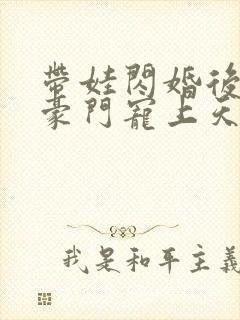 帶娃閃婚後
豪門寵上天
我是和平主義